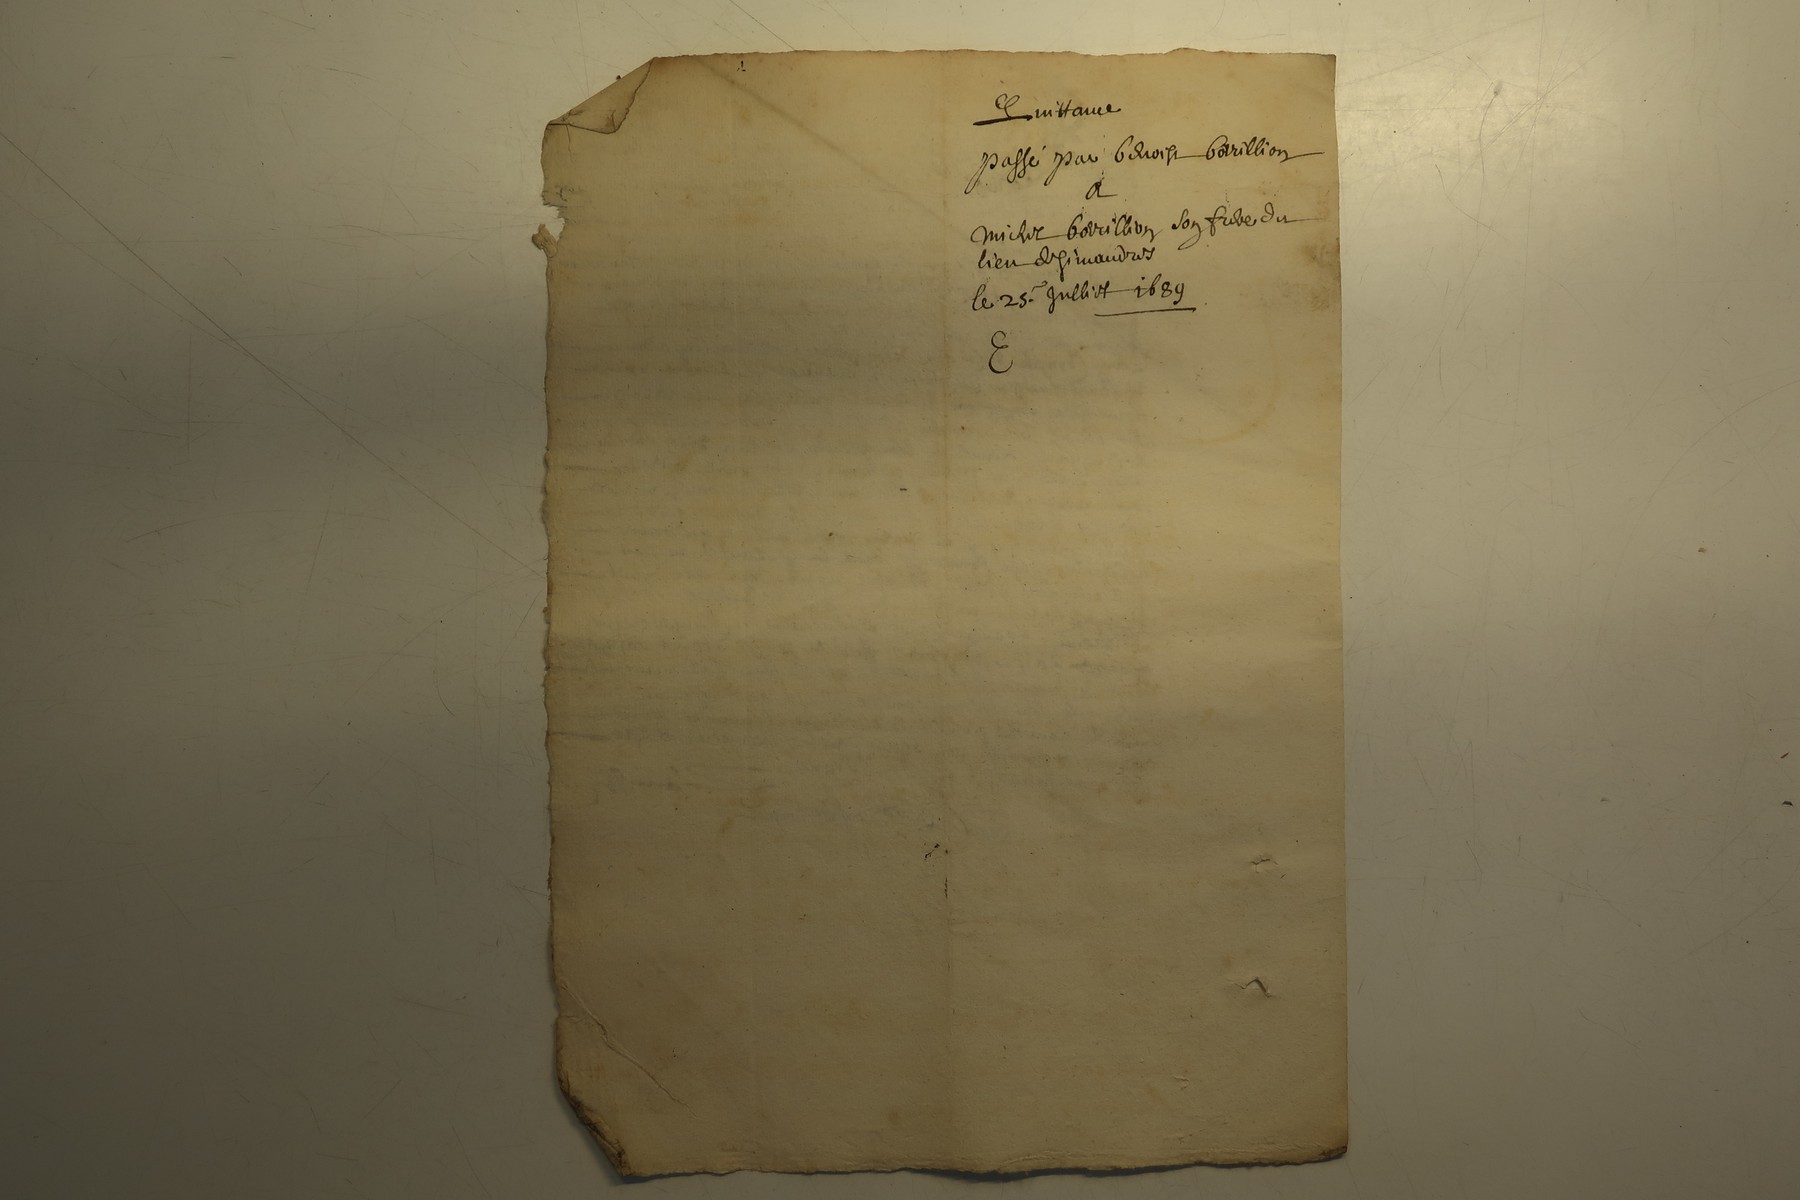 Quittance
passé par benoist borillion
a
michel borillion son frere du
lieu
le 25e Julliet 1689
E